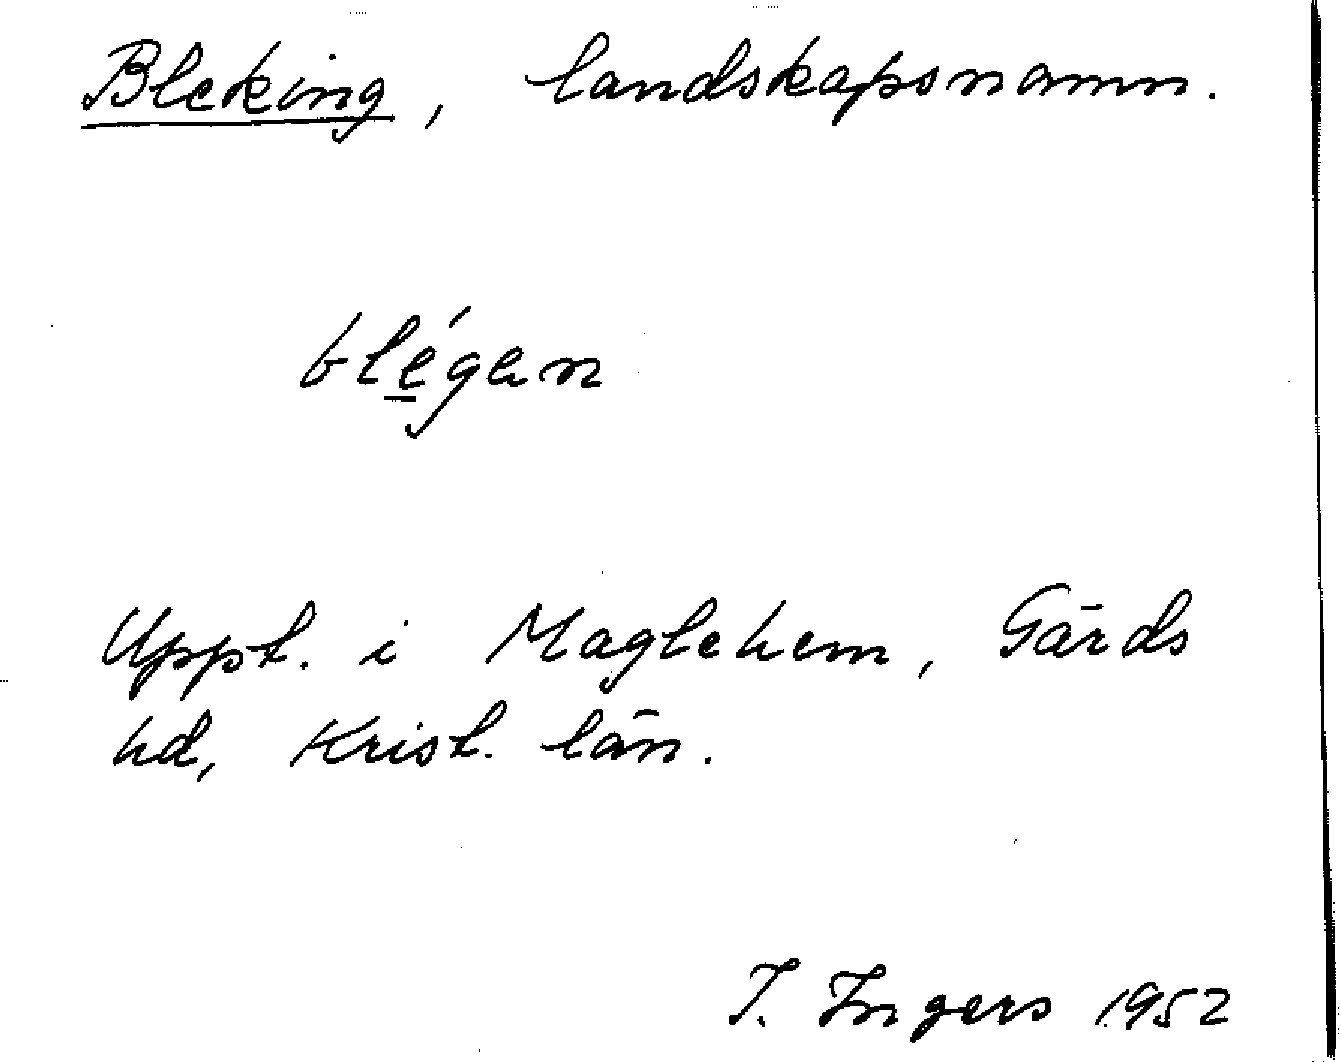 Bleking, landskapsnamn.
blégen
Uppt. i Maglehem, Gärds
hd, Krist. län.
I. Ingers 1952